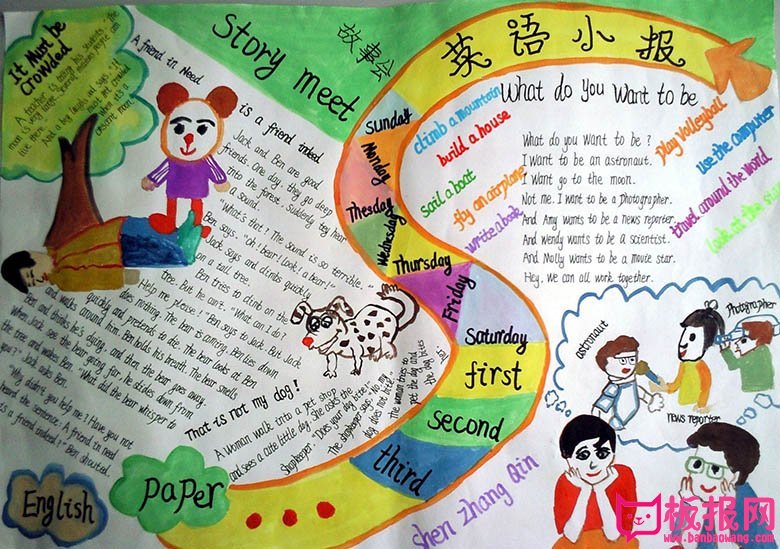 It Must be
Crowded
Story meet
故事会
英语小报
A friend in Need
is a friend indeed
Jack and Ben are good
friends. One day, they go deep
into the forest. Suddenly they hear
a sound.
"What's that! The sound is so terrible."
Ben says. "Oh! Bear! Look! a bear!"
Jack says and climbs quickly
on a tall tree.
Ben tries to climb on its
tree. But he can't. "What can I do?
Help me please!" Ben says to Jack. But Jack
does nothing. The bear is coming. Ben lies down
quickly and pretends to die. The bear looks at Ben
and walks around him. Ben holds his breath. The bear smells
Ben and thinks he's dying. and then the bear goes away.
When Jack sees the bear going far, he slides down from
the tree and makes Ben. "What did the bear whisper to
you?" Jack asks Ben.
"Why didn't you help me? Have you not
heard the sentence: A friend in need
is a friend indeed?" Ben shouted.
That is not my dog!
A woman walk into a pet shop
and sees a cute little dog. She asks the
shopkeeper: "Does your dog bite?"
The shopkeeper says: "No, my
dog does not bite."
The woman tries to
pet the dog and
the dog bites
her.
English
paper
Sunday
Monday
Thesday
Wednesday
Thursday
Friday
Saturday
first
second
third
chen zhang Qin
What do you Want to be
climb a mountain
build a house
sail a boat
fly an airplane
write a book
What do you want to be?
I want to be an astronaut.
I want go to the moon.
Not me. I want to be a photographer.
And Amy wants to be a news reporter.
And Wendy wants to be a scientist.
And Molly wants to be a movie star.
Hey, we can all work together.
play volleyball
use the computer
travel around the world
look at the
astronaut
photographer
news reporter
板报网
www.banbaowang.com